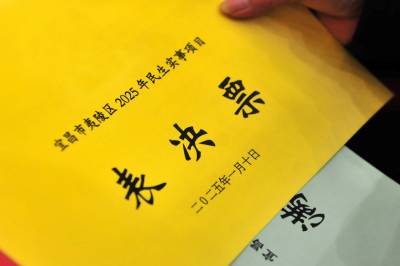 宜昌市夷陵区2025年民生实事项目
表决票
二〇二五年一月十日